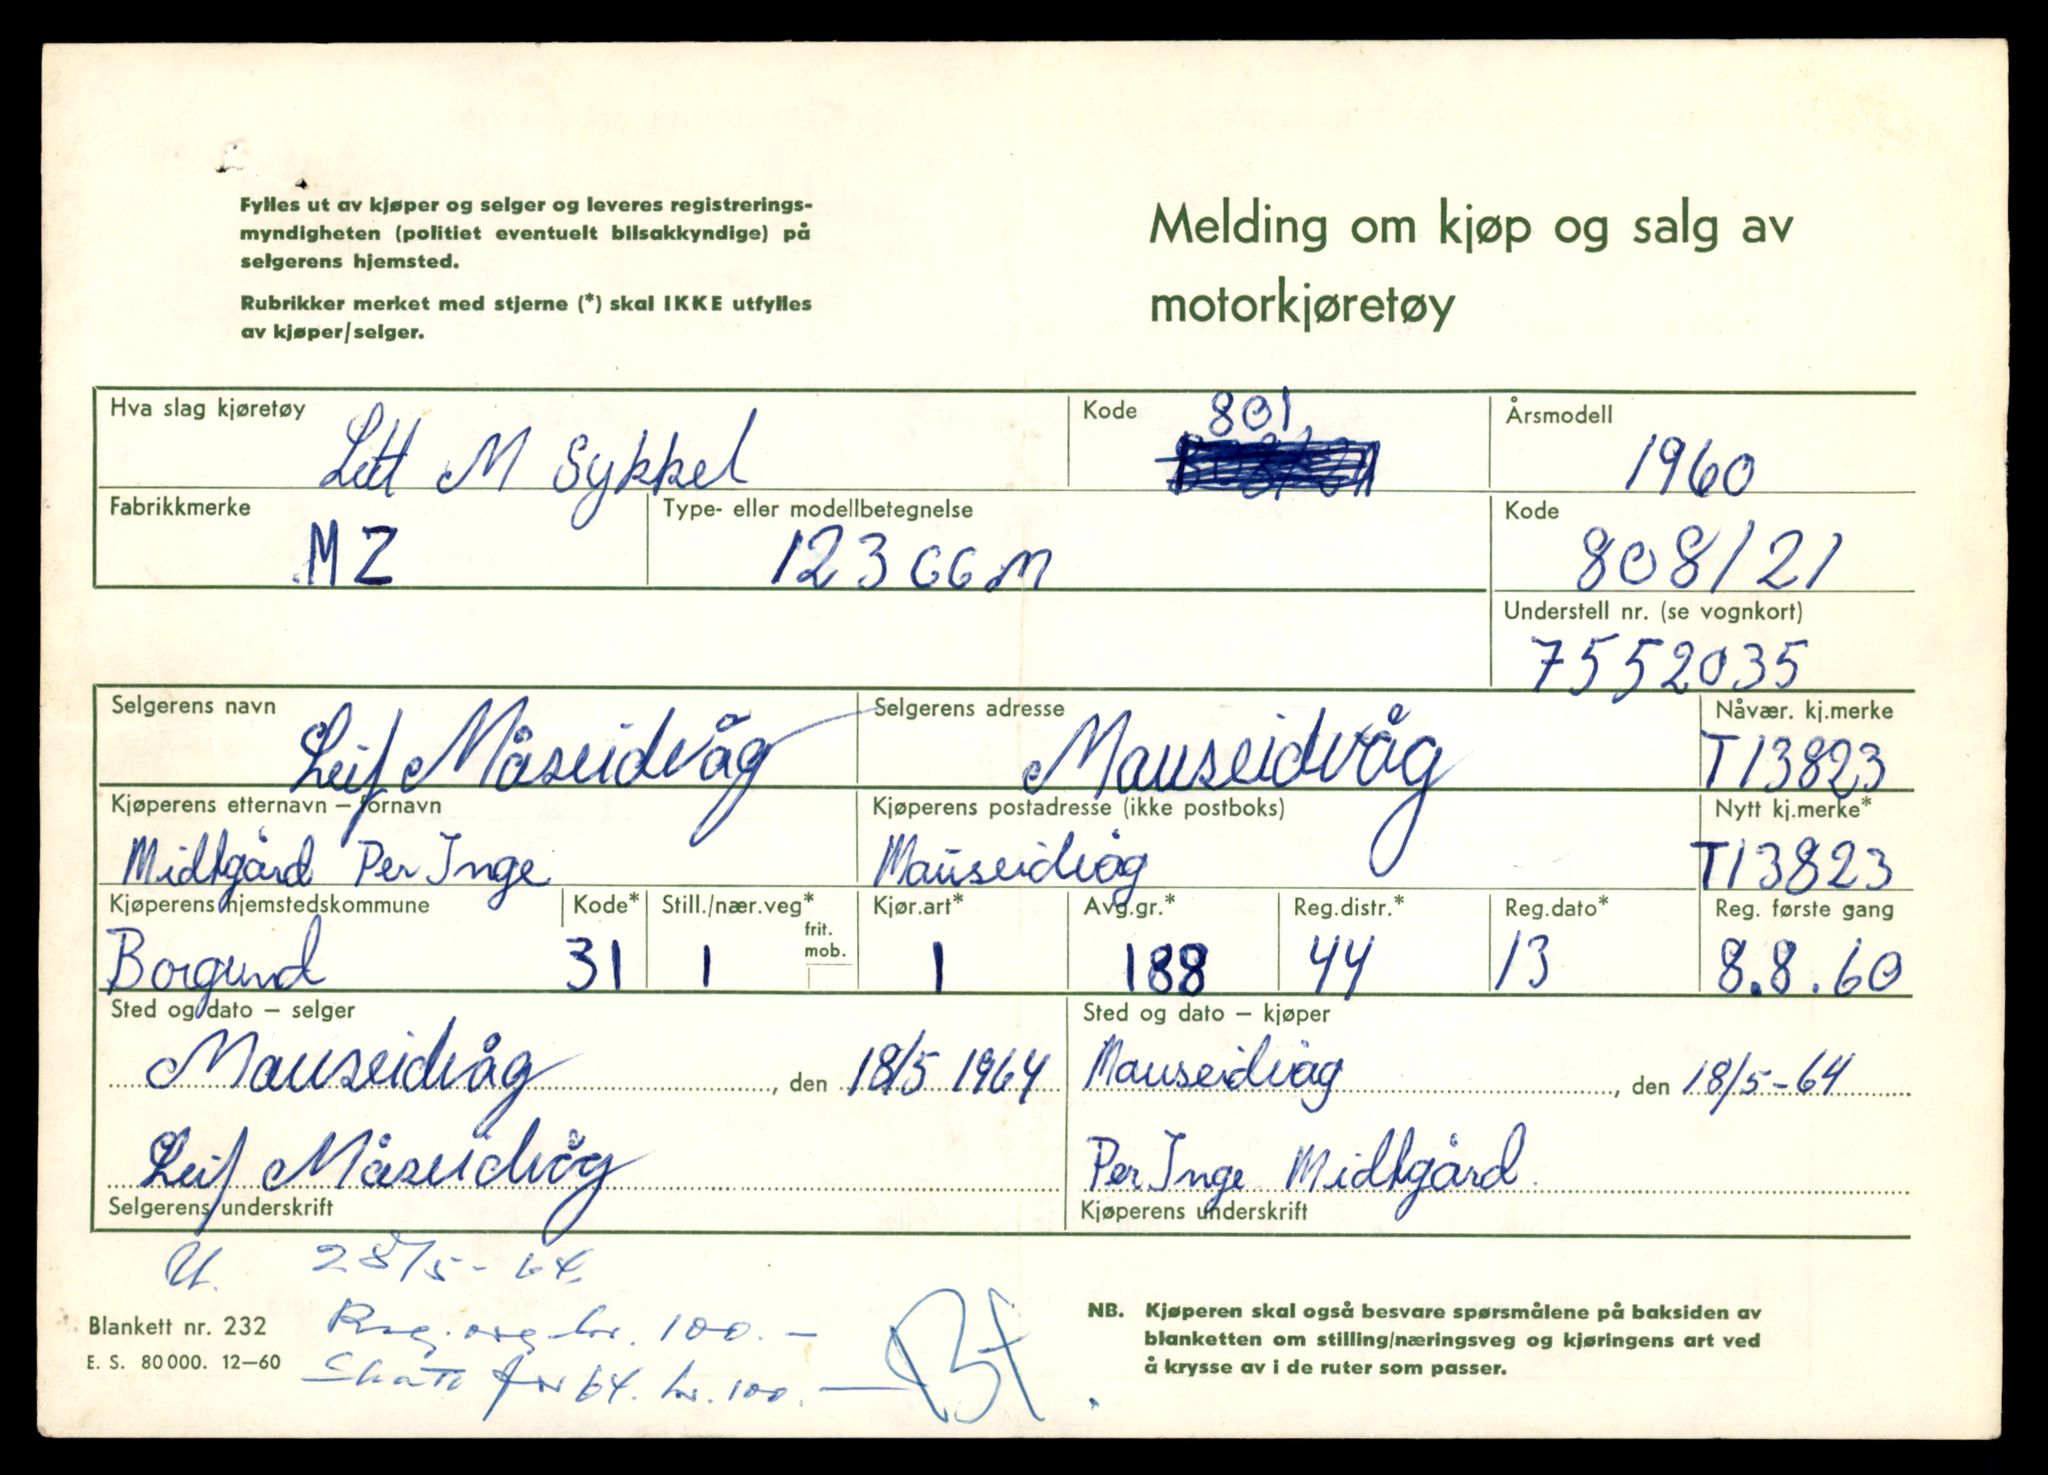 Fylles ut av kjøper og selger og leveres registrerings-
myndigheten (politiet eventuelt bilsakkyndige) på
selgerens hjemsted.
Rubrikker merket med stjerne (*) skal IKKE utfylles
av kjøper/selger.
Melding om kjøp og salg av
motorkjøretøy
Hva slag kjøretøy
Lett M Sykkel
Kode
801
Årsmodell
1960
Fabrikkmerke
MZ
Type- eller modellbetegnelse
123 ccm
Kode
808/21
Understell nr. (se vognkort)
7552035
Selgerens navn
Leif Måseidvåg
Selgerens adresse
Mauseidvåg
Nåvær. kj.merke
T13823
Kjøperens etternavn – fornavn
Midtgård Per Inge
Kjøperens postadresse (ikke postboks)
Mauseidvåg
Nytt kj.merke*
T13823
Kjøperens hjemstedskommune
Borgund
Kode*
31
Still./nær.veg*
frit.
mob.
1
Kjør.art*
1
Avg.gr.*
188
Reg.distr.*
44
Reg.dato*
13
Reg. første gang
8.8.60
Sted og dato – selger
Mauseidvåg, den 18/5 1964
Leif Måseidvåg
Selgerens underskrift
Sted og dato – kjøper
Mauseidvåg, den 18/5-64
Per Inge Midtgård.
Kjøperens underskrift
U. 28/5-64.
Reg. avg. kr. 100.-
Skatt for 64. kr. 100.-
Blankett nr. 232
E. S. 80 000. 12–60
NB. Kjøperen skal også besvare spørsmålene på baksiden av
blanketten om stilling/næringsveg og kjøringens art ved
å krysse av i de ruter som passer.